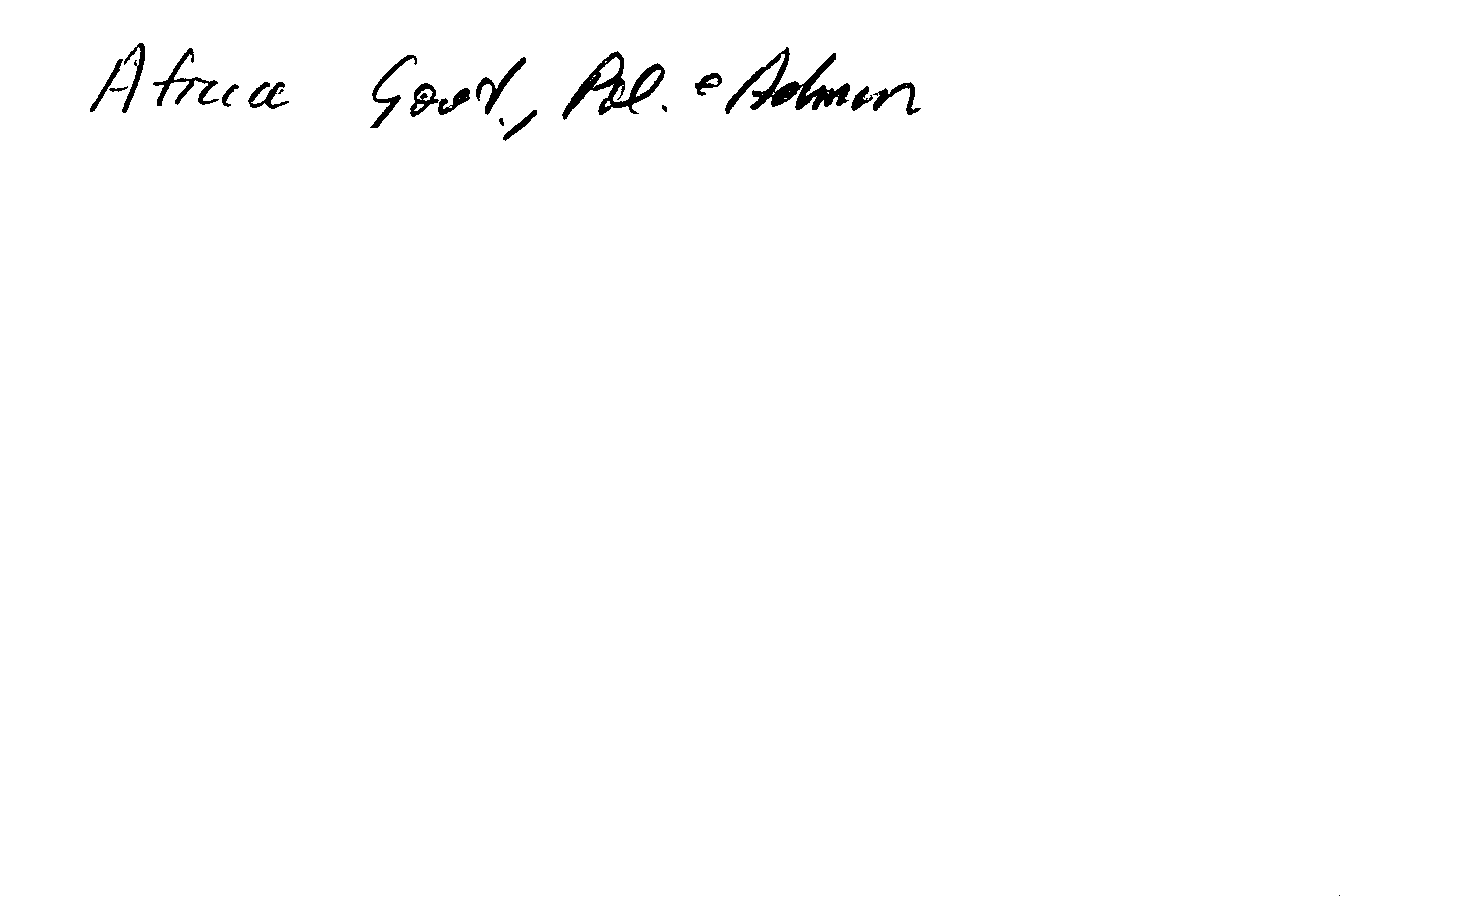 Africa Govt., Pol. & Admin